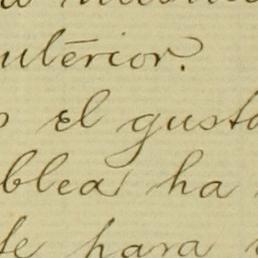 ulterior.
el gusto
blea ha
te para